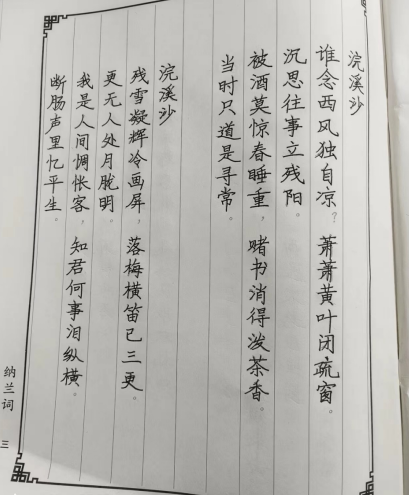 浣溪沙
谁念西风独自凉？ 萧萧黄叶闭疏窗。
沉思往事立残阳。
被酒莫惊春睡重， 赌书消得泼茶香。
当时只道是寻常。
浣溪沙
残雪凝辉冷画屏， 落梅横笛已三更。
更无人处月胧明。
我是人间惆怅客， 知君何事泪纵横。
断肠声里忆平生。
纳兰词
三